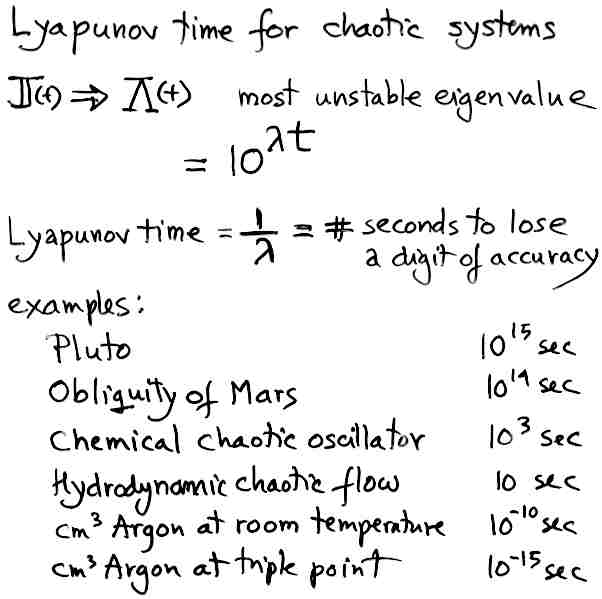 Lyapunov time for chaotic systems
J(t) ⇒ Λ(t) most unstable eigenvalue
= 10^λt
Lyapunov time = 1/λ = # seconds to lose
a digit of accuracy
examples:
Pluto 10^15 sec
Obliquity of Mars 10^14 sec
Chemical chaotic oscillator 10^3 sec
Hydrodynamic chaotic flow 10 sec
cm^3 Argon at room temperature 10^-10 sec
cm^3 Argon at triple point 10^-15 sec